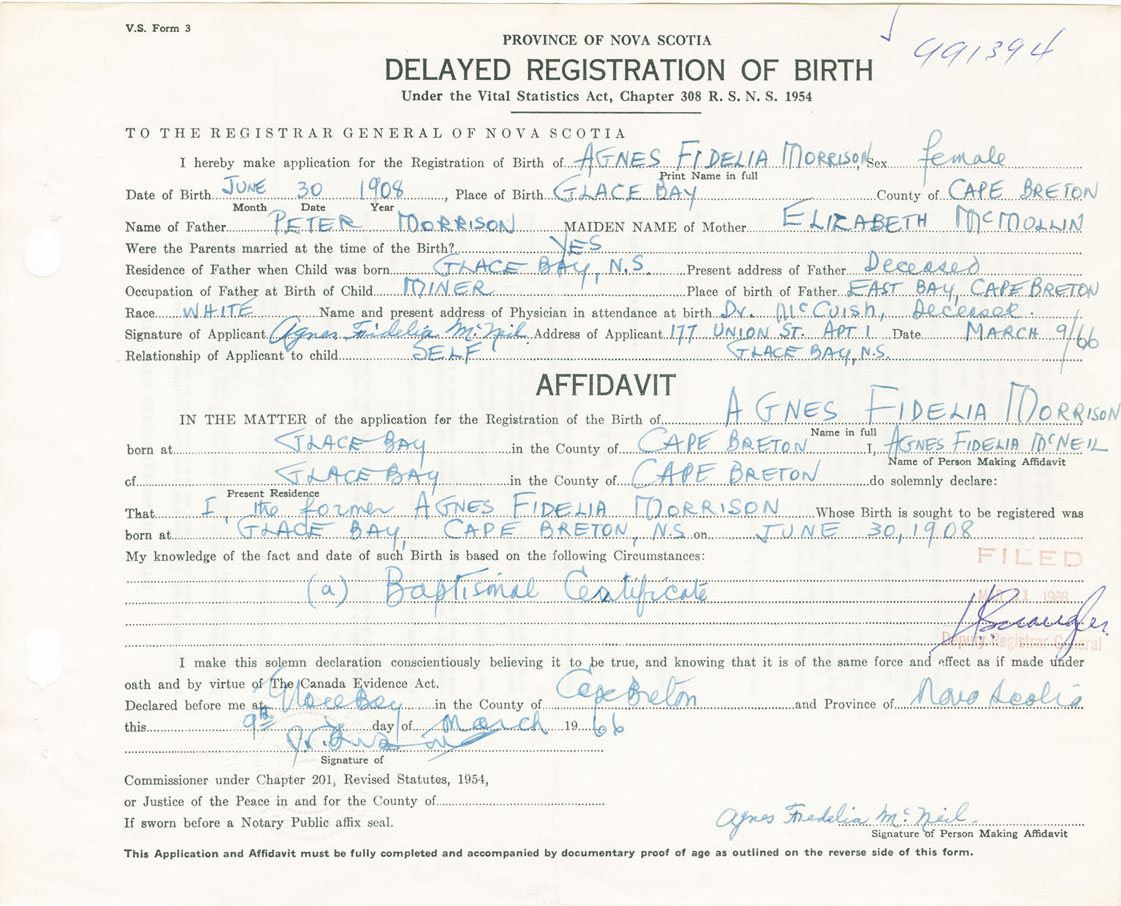 V.S. Form 3
991394
PROVINCE OF NOVA SCOTIA
DELAYED REGISTRATION OF BIRTH
Under the Vital Statistics Act, Chapter 308 R. S. N. S. 1954
TO THE REGISTRAR GENERAL OF NOVA SCOTIA
I hereby make application for the Registration of Birth of AGNES FIDELIA MORRISON Sex female
Print Name in full
Date of Birth JUNE 30 1908, Place of Birth GLACE BAY County of CAPE BRETON
Month Date Year
Name of Father PETER MORRISON MAIDEN NAME of Mother ELIZABETH McMULLIN
Were the Parents married at the time of the Birth? YES
Residence of Father when Child was born GLACE BAY, N.S. Present address of Father Deceased
Occupation of Father at Birth of Child MINER Place of birth of Father EAST BAY, CAPE BRETON
Race WHITE Name and present address of Physician in attendance at birth Dr. McCuish, Deceased.
Signature of Applicant Agnes Fidelia McNeil Address of Applicant 177 UNION ST. APT 1 Date MARCH 9/66
Relationship of Applicant to child SELF GLACE BAY, N.S.
AFFIDAVIT
IN THE MATTER of the application for the Registration of the Birth of AGNES FIDELIA MORRISON
Name in full
born at GLACE BAY in the County of CAPE BRETON I, AGNES FIDELIA McNEIL
Name of Person Making Affidavit
of GLACE BAY in the County of CAPE BRETON do solemnly declare:
Present Residence
That I, the former AGNES FIDELIA MORRISON Whose Birth is sought to be registered was
born at GLACE BAY, CAPE BRETON, N.S. on JUNE 30, 1908
My knowledge of the fact and date of such Birth is based on the following Circumstances:
FILED
(a) Baptismal Certificate
1966
Deputy Registrar General
I make this solemn declaration conscientiously believing it to be true, and knowing that it is of the same force and effect as if made under
oath and by virtue of The Canada Evidence Act.
Declared before me at Glace Bay in the County of Cape Breton and Province of Nova Scotia
this 9th day of March 1966
Signature of
Commissioner under Chapter 201, Revised Statutes, 1954,
or Justice of the Peace in and for the County of
If sworn before a Notary Public affix seal.
Agnes Fidelia McNeil
Signature of Person Making Affidavit
This Application and Affidavit must be fully completed and accompanied by documentary proof of age as outlined on the reverse side of this form.